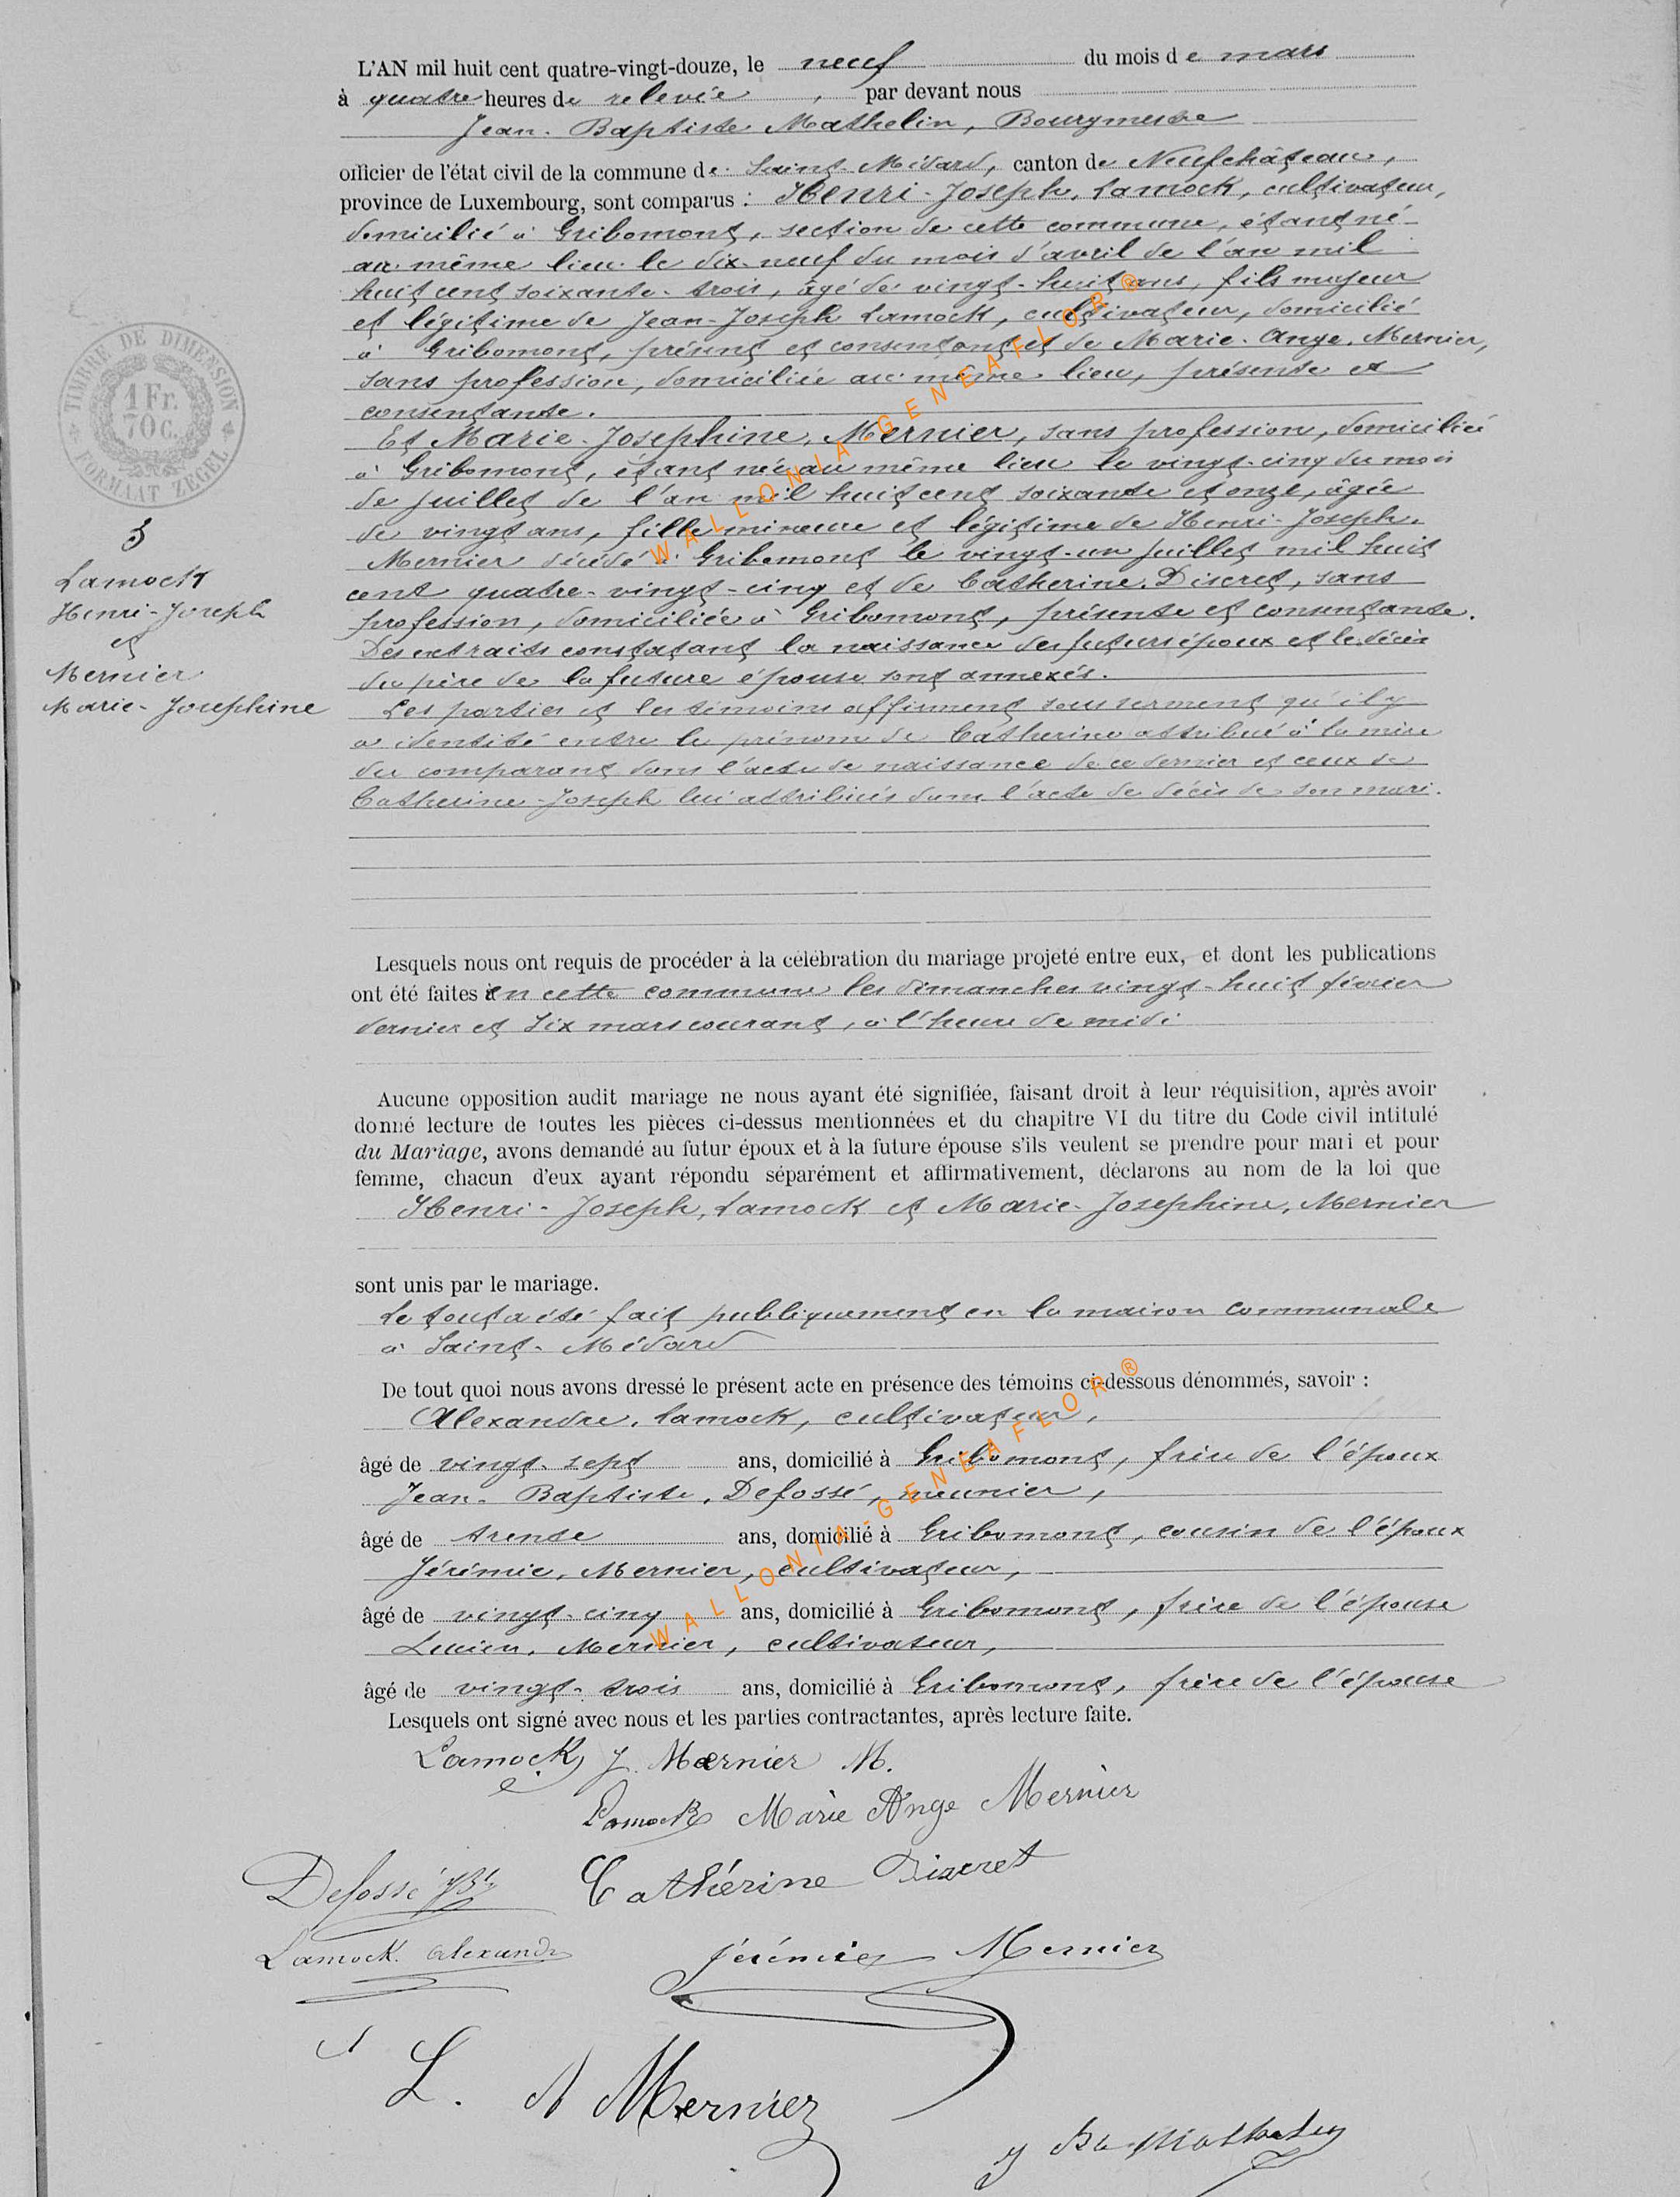 L'AN mil huit cent quatre-vingt-douze, le neuf du mois de mars
à quatre heures de relevée, par devant nous
Jean-Baptiste Mathelin, Bourgmestre
officier de l'état civil de la commune de Saint-Médard, canton de Neufchâteau,
province de Luxembourg, sont comparus : Henri-Joseph, Lamock, cultivateur,
domicilié à Gribomont, section de cette commune, étant né
au même lieu le dix-neuf du mois d'avril de l'an mil
huit cent soixante-trois, âgé de vingt-huit ans, fils majeur
et légitime de Jean-Joseph Lamock, cultivateur, domicilié
à Gribomont, présent et consentant et de Marie-Ange, Mernier,
sans profession, domiciliée au même lieu, présente et
consentante.
Et Marie-Josephine, Mernier, sans profession, domiciliée
à Gribomont, étant née au même lieu le vingt-cinq du mois
de juillet de l'an mil huit cent soixante et onze, âgée
de vingt ans, fille mineure et légitime de Henri-Joseph,
Mernier décédé à Gribomont le vingt-un juillet mil huit
cent quatre-vingt-cinq et de Catherine, Discret, sans
profession, domiciliée à Gribomont, présente et consentante.
Des extraits constatant la naissance des futurs époux et le décès
du père de la future épouse sont annexés.
Les parties et les témoins affirment sous serment qu'il y
a identité entre le prénom de Catherine attribué à la mère
du comparant dans l'acte de naissance de ce dernier et ceux de
Catherine-Joseph lui attribués dans l'acte de décès de son mari.
TIMBRE DE DIMENSION
1 Fr.
70 C.
FORMAAT ZEGEL
3
Lamock
Henri-Joseph
et
Mernier
Marie-Josephine
Lesquels nous ont requis de procéder à la célébration du mariage projeté entre eux, et dont les publications
ont été faites en cette commune les dimanches vingt-huit février
dernier et six mars courant, à l'heure de midi
Aucune opposition audit mariage ne nous ayant été signifiée, faisant droit à leur réquisition, après avoir
donné lecture de toutes les pièces ci-dessus mentionnées et du chapitre VI du titre du Code civil intitulé
du Mariage, avons demandé au futur époux et à la future épouse s'ils veulent se prendre pour mari et pour
femme, chacun d'eux ayant répondu séparément et affirmativement, déclarons au nom de la loi que
Henri-Joseph, Lamock et Marie-Josephine, Mernier
sont unis par le mariage.
Le tout a été fait publiquement en la maison communale
à Saint-Médard
De tout quoi nous avons dressé le présent acte en présence des témoins ci-dessous dénommés, savoir :
Alexandre, Lamock, cultivateur,
âgé de vingt-sept ans, domicilié à Gribomont, frère de l'époux
Jean-Baptiste, Defossé, meunier,
âgé de trente ans, domicilié à Gribomont, cousin de l'époux
Jérémie, Mernier, cultivateur,
âgé de vingt-cinq ans, domicilié à Gribomont, frère de l'épouse
Lucien, Mernier, cultivateur,
âgé de vingt-trois ans, domicilié à Gribomont, frère de l'épouse
Lesquels ont signé avec nous et les parties contractantes, après lecture faite.
Lamock J. Mernier M.
Lamock Marie Ange Mernier
Defossé JBte Cathérine Discret
Lamock Alexandre Jérémie Mernier
L. A Mernier
J Bte Mathelin
WALLONIA-GENEAFLOR®
WALLONIA-GENEAFLOR®